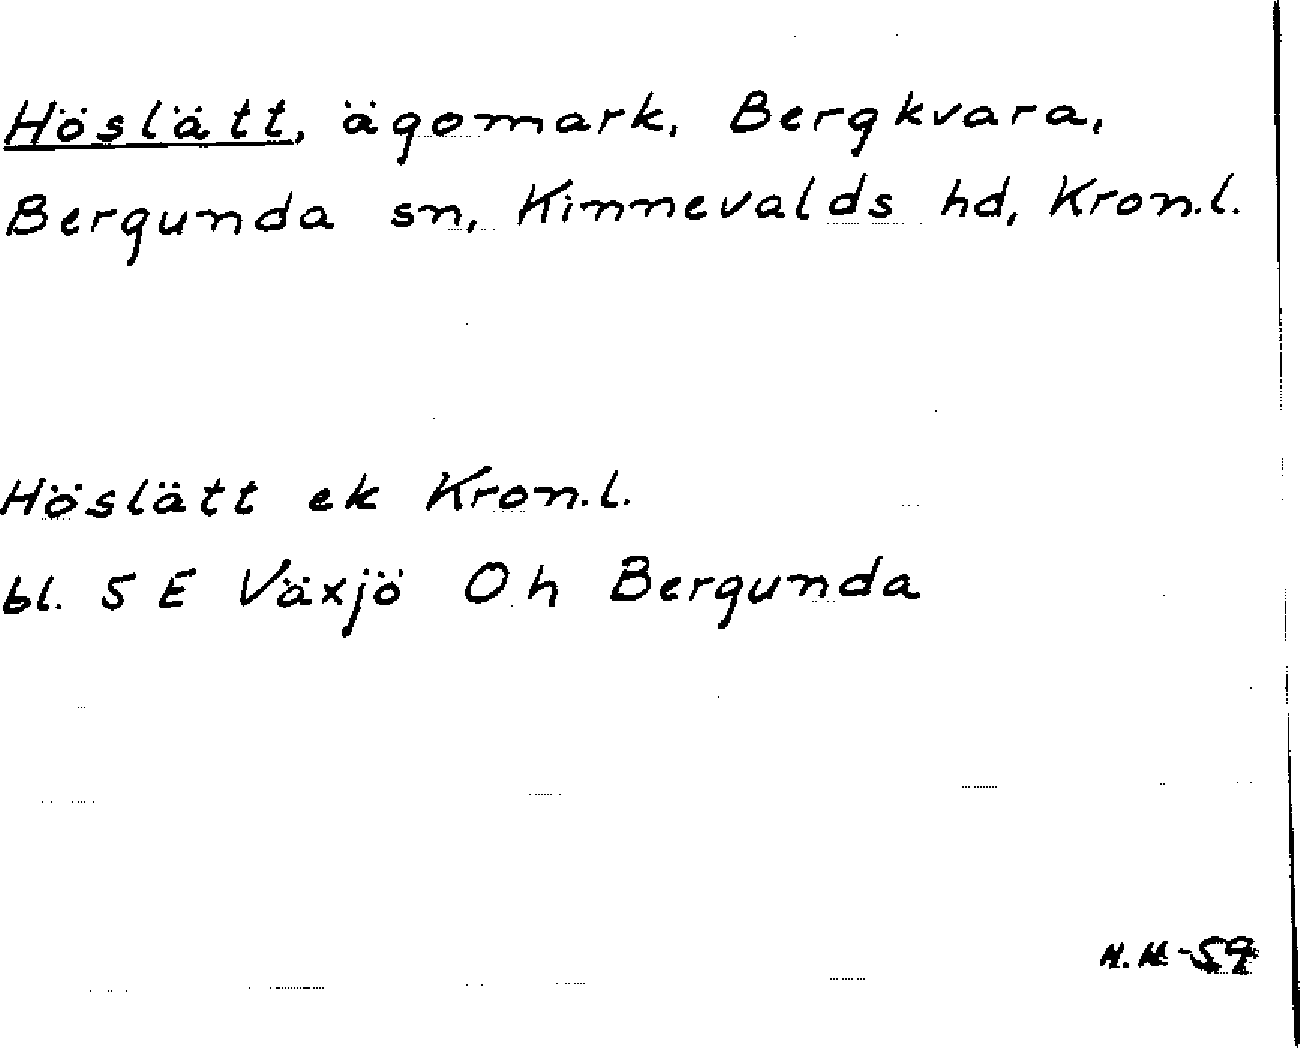 Höslätt, ägomark, Bergkvara,
Bergunda sn, Kinnevalds hd, Kron.l.
Höslätt ek Kron.l.
bl. 5 E Växjö Oh Bergunda
-59